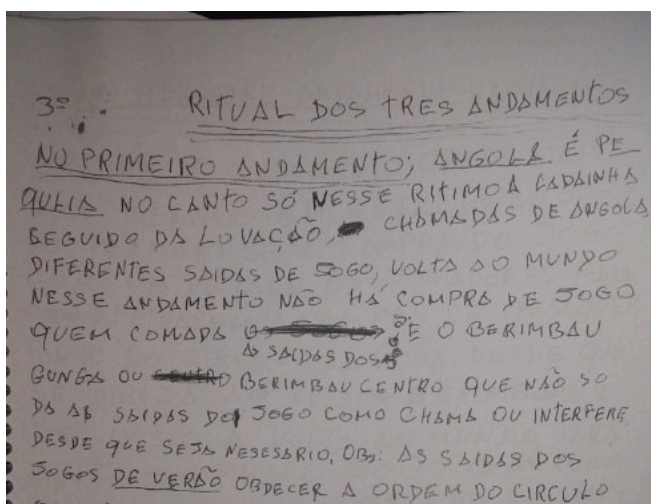 3º. RITUAL DOS TRES ANDAMENTOS
NO PRIMEIRO ANDAMENTO; ANGOLA É PE
QULIA NO CANTO SÓ NESSE RITIMO A LADAINHA
SEGUIDO DA LOVAÇÃO, CHAMADAS DE ANGOLA,
DIFERENTES SAIDAS DE JOGO, VOLTA AO MUNDO
NESSE ANDAMENTO NÃO HÁ COMPRA DE JOGO
QUEM COMADA É O BERIMBAU
AS SAIDAS DOS
GUNGA OU BERIMBAU CENTRO QUE NÃO SO
DA AS SAIDAS DO JOGO COMO CHAMA OU INTERFERE
DESDE QUE SEJA NESESSARIO, OBS: AS SAIDAS DOS
JOGOS DE VERÃO OBDECER A ORDEM DO CIRCULO